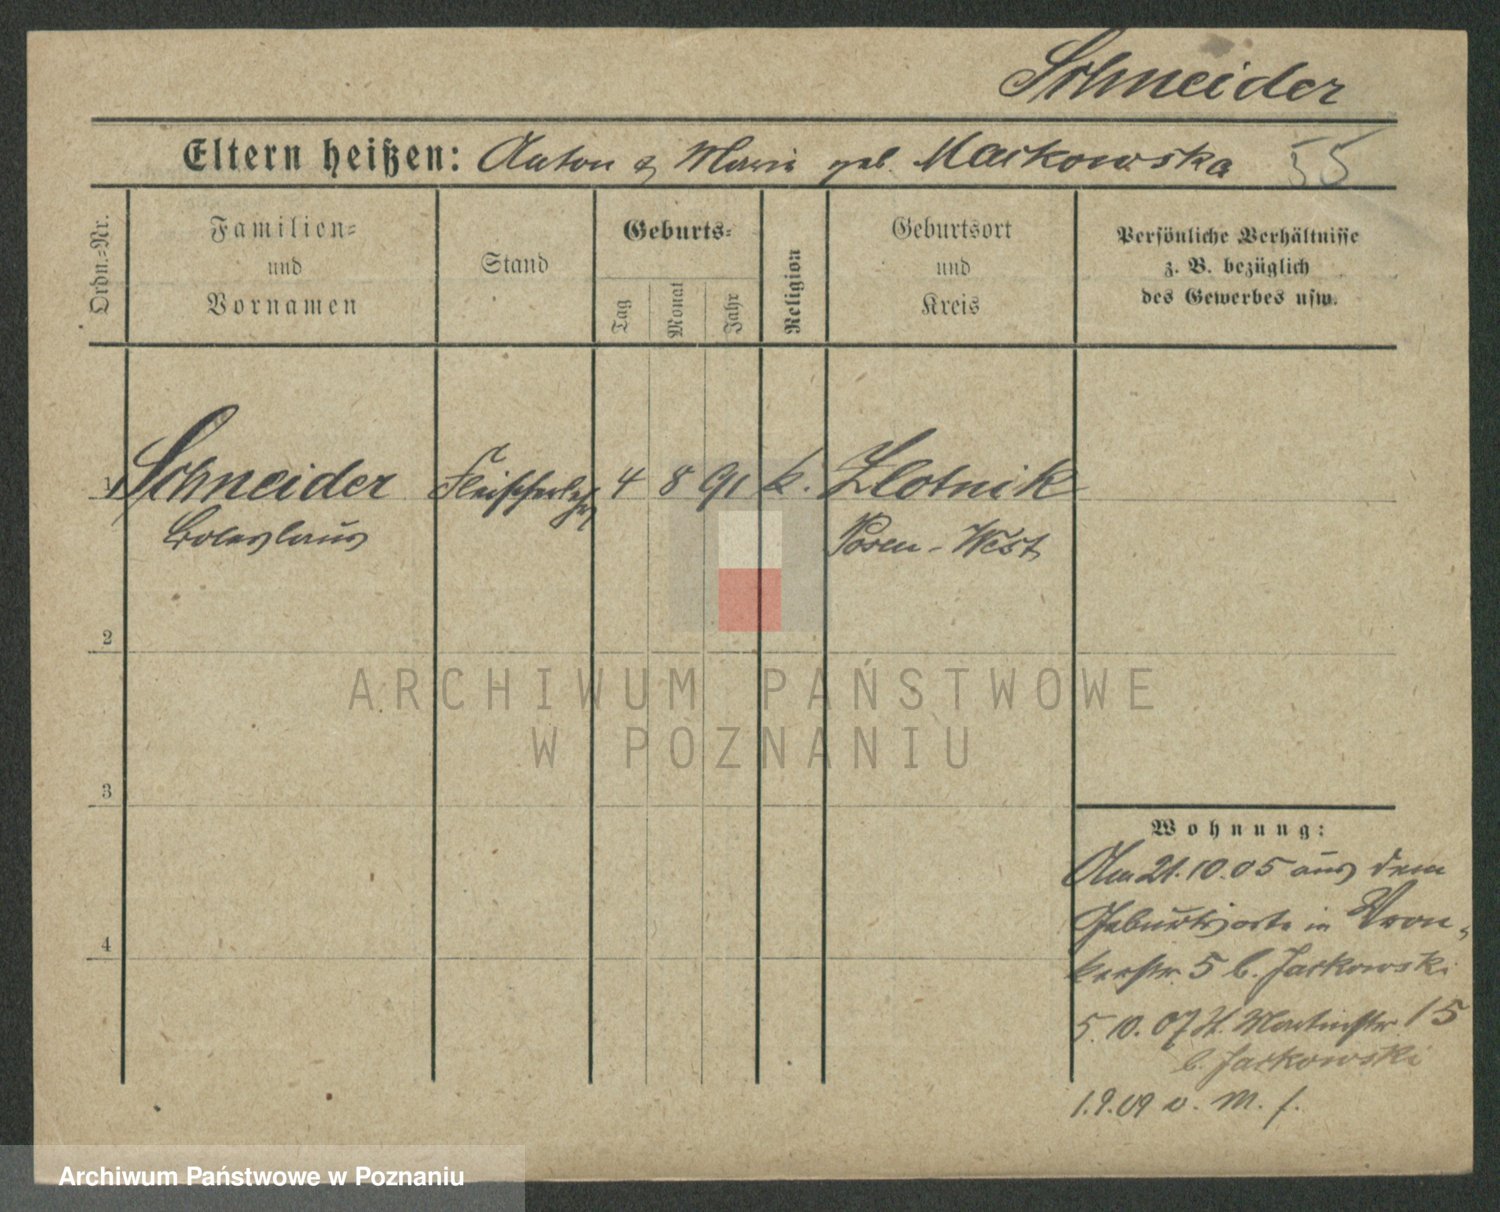 Schneider
Eltern heißen: Anton & Maria geb. Markowska 55
Ordn.-Nr.
Familien-
und
Vornamen
Stand
Geburts-
Tag
Monat
Jahr
Religion
Geburtsort
und
Kreis
Persönliche Verhältnisse
z. B. bezüglich
des Gewerbes usw.
1 Schneider Fleischerlehrl 4 8 91 k. Zlotnik
Boleslaus Posen-West
2
3
4
Wohnung:
Am 21.10.05 aus dem
Geburtsorte in Wron-
kerstr. 5 b. Jaskowski
5.10.07 St. Martinstr 15
b. Jaskowski
1.9.09 v. M. f.
ARCHIWUM PAŃSTWOWE
W POZNANIU
Archiwum Państwowe w Poznaniu